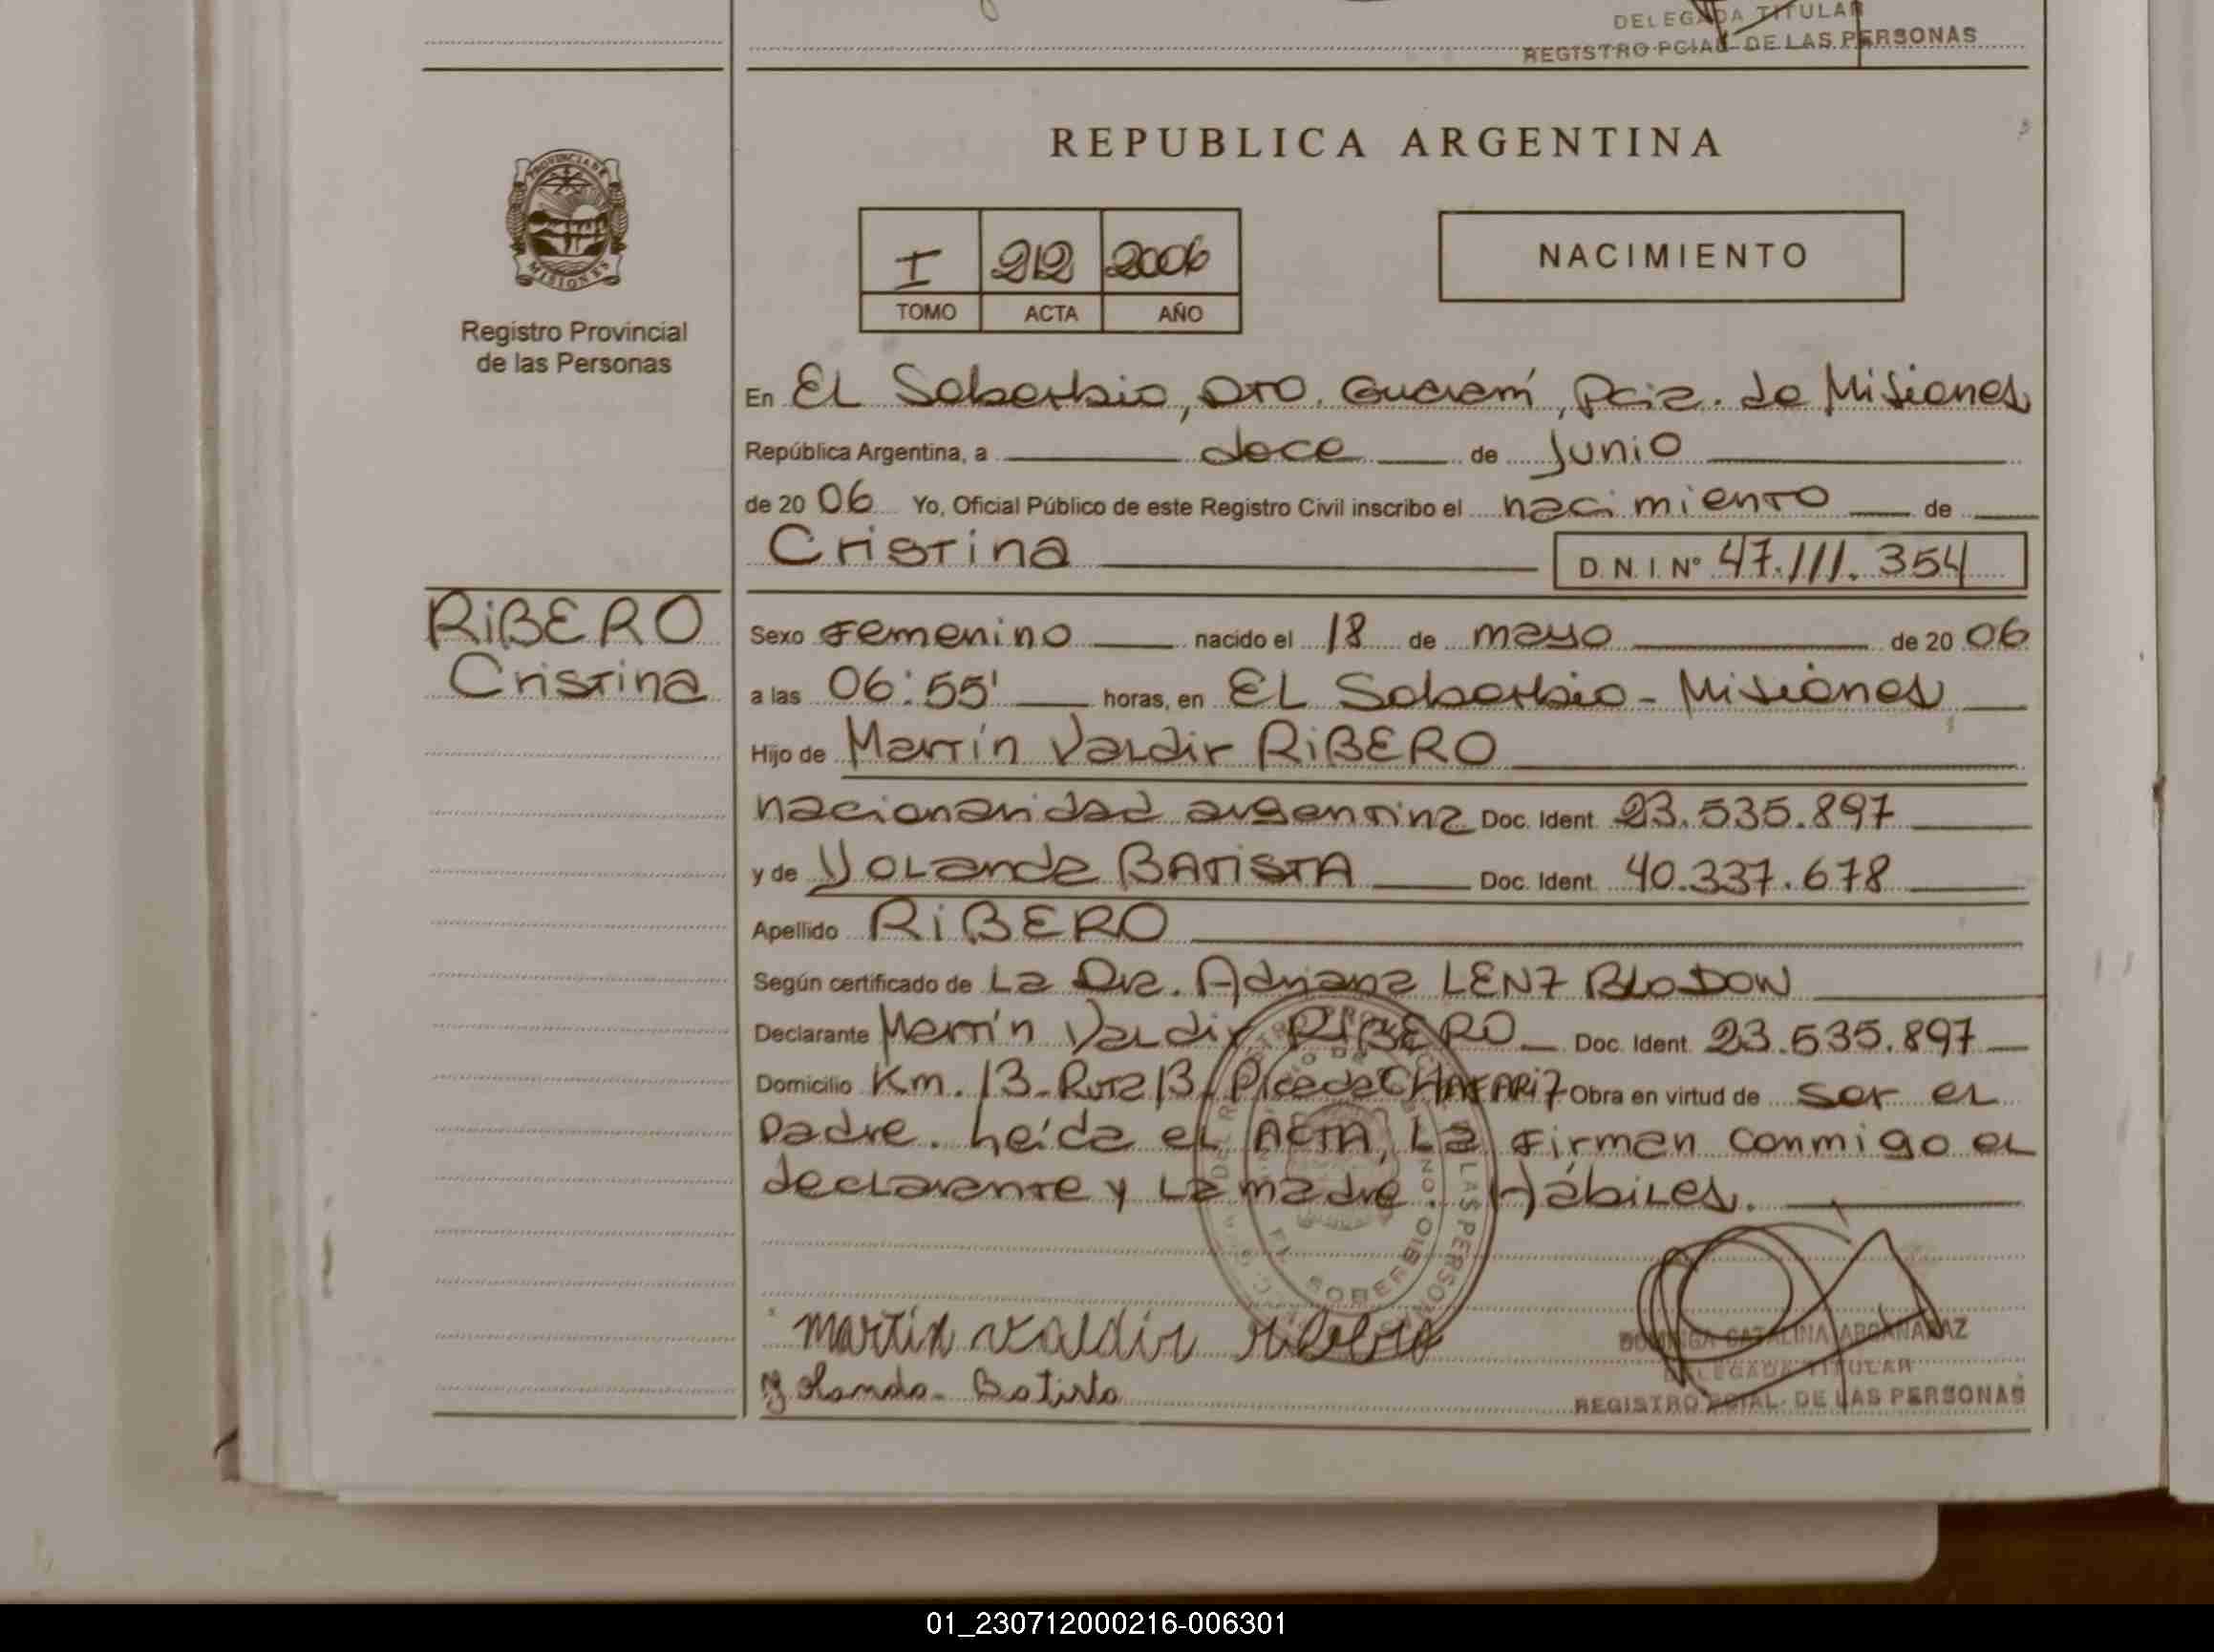 DELEGADA TITULAR
REGISTRO PCIAL DE LAS PERSONAS
PROVINCIA DE
MISIONES
Registro Provincial
de las Personas
REPUBLICA ARGENTINA
I 212 2006
TOMO ACTA AÑO
NACIMIENTO
En EL Soberbio, DTO. Guaraní, Pcia. de Misiones
República Argentina, a doce de Junio
de 20 06 Yo, Oficial Público de este Registro Civil inscribo el nacimiento de
Cristina
D. N. I. Nº 47.111.354
RiBERO
Cristina
Sexo Femenino nacido el 18 de mayo de 20 06
a las 06:55' horas, en EL Soberbio - Misiones
Hijo de Martín Valdir RiBERO
nacionalidad argentina Doc. Ident. 23.535.897
y de Yolanda BATISTA Doc. Ident. 40.337.678
Apellido RiBERO
Según certificado de La Dra. Adriana LENZ BLODOW
Declarante Martín Valdir RIBERO Doc. Ident. 23.535.897
Domicilio Km. 13 - Ruta 13, Picada Obra en virtud de ser el
padre. Leída el ACTA, La Firman conmigo el
declarante y la madre Hábiles.
EL SOBERBIO
LAS PERSONAS
martin valdir ribero
Yolanda Batista
CATALINA ARGAÑARAZ
DELEGADA TITULAR
REGISTRO PCIAL. DE LAS PERSONAS
01_230712000216-006301